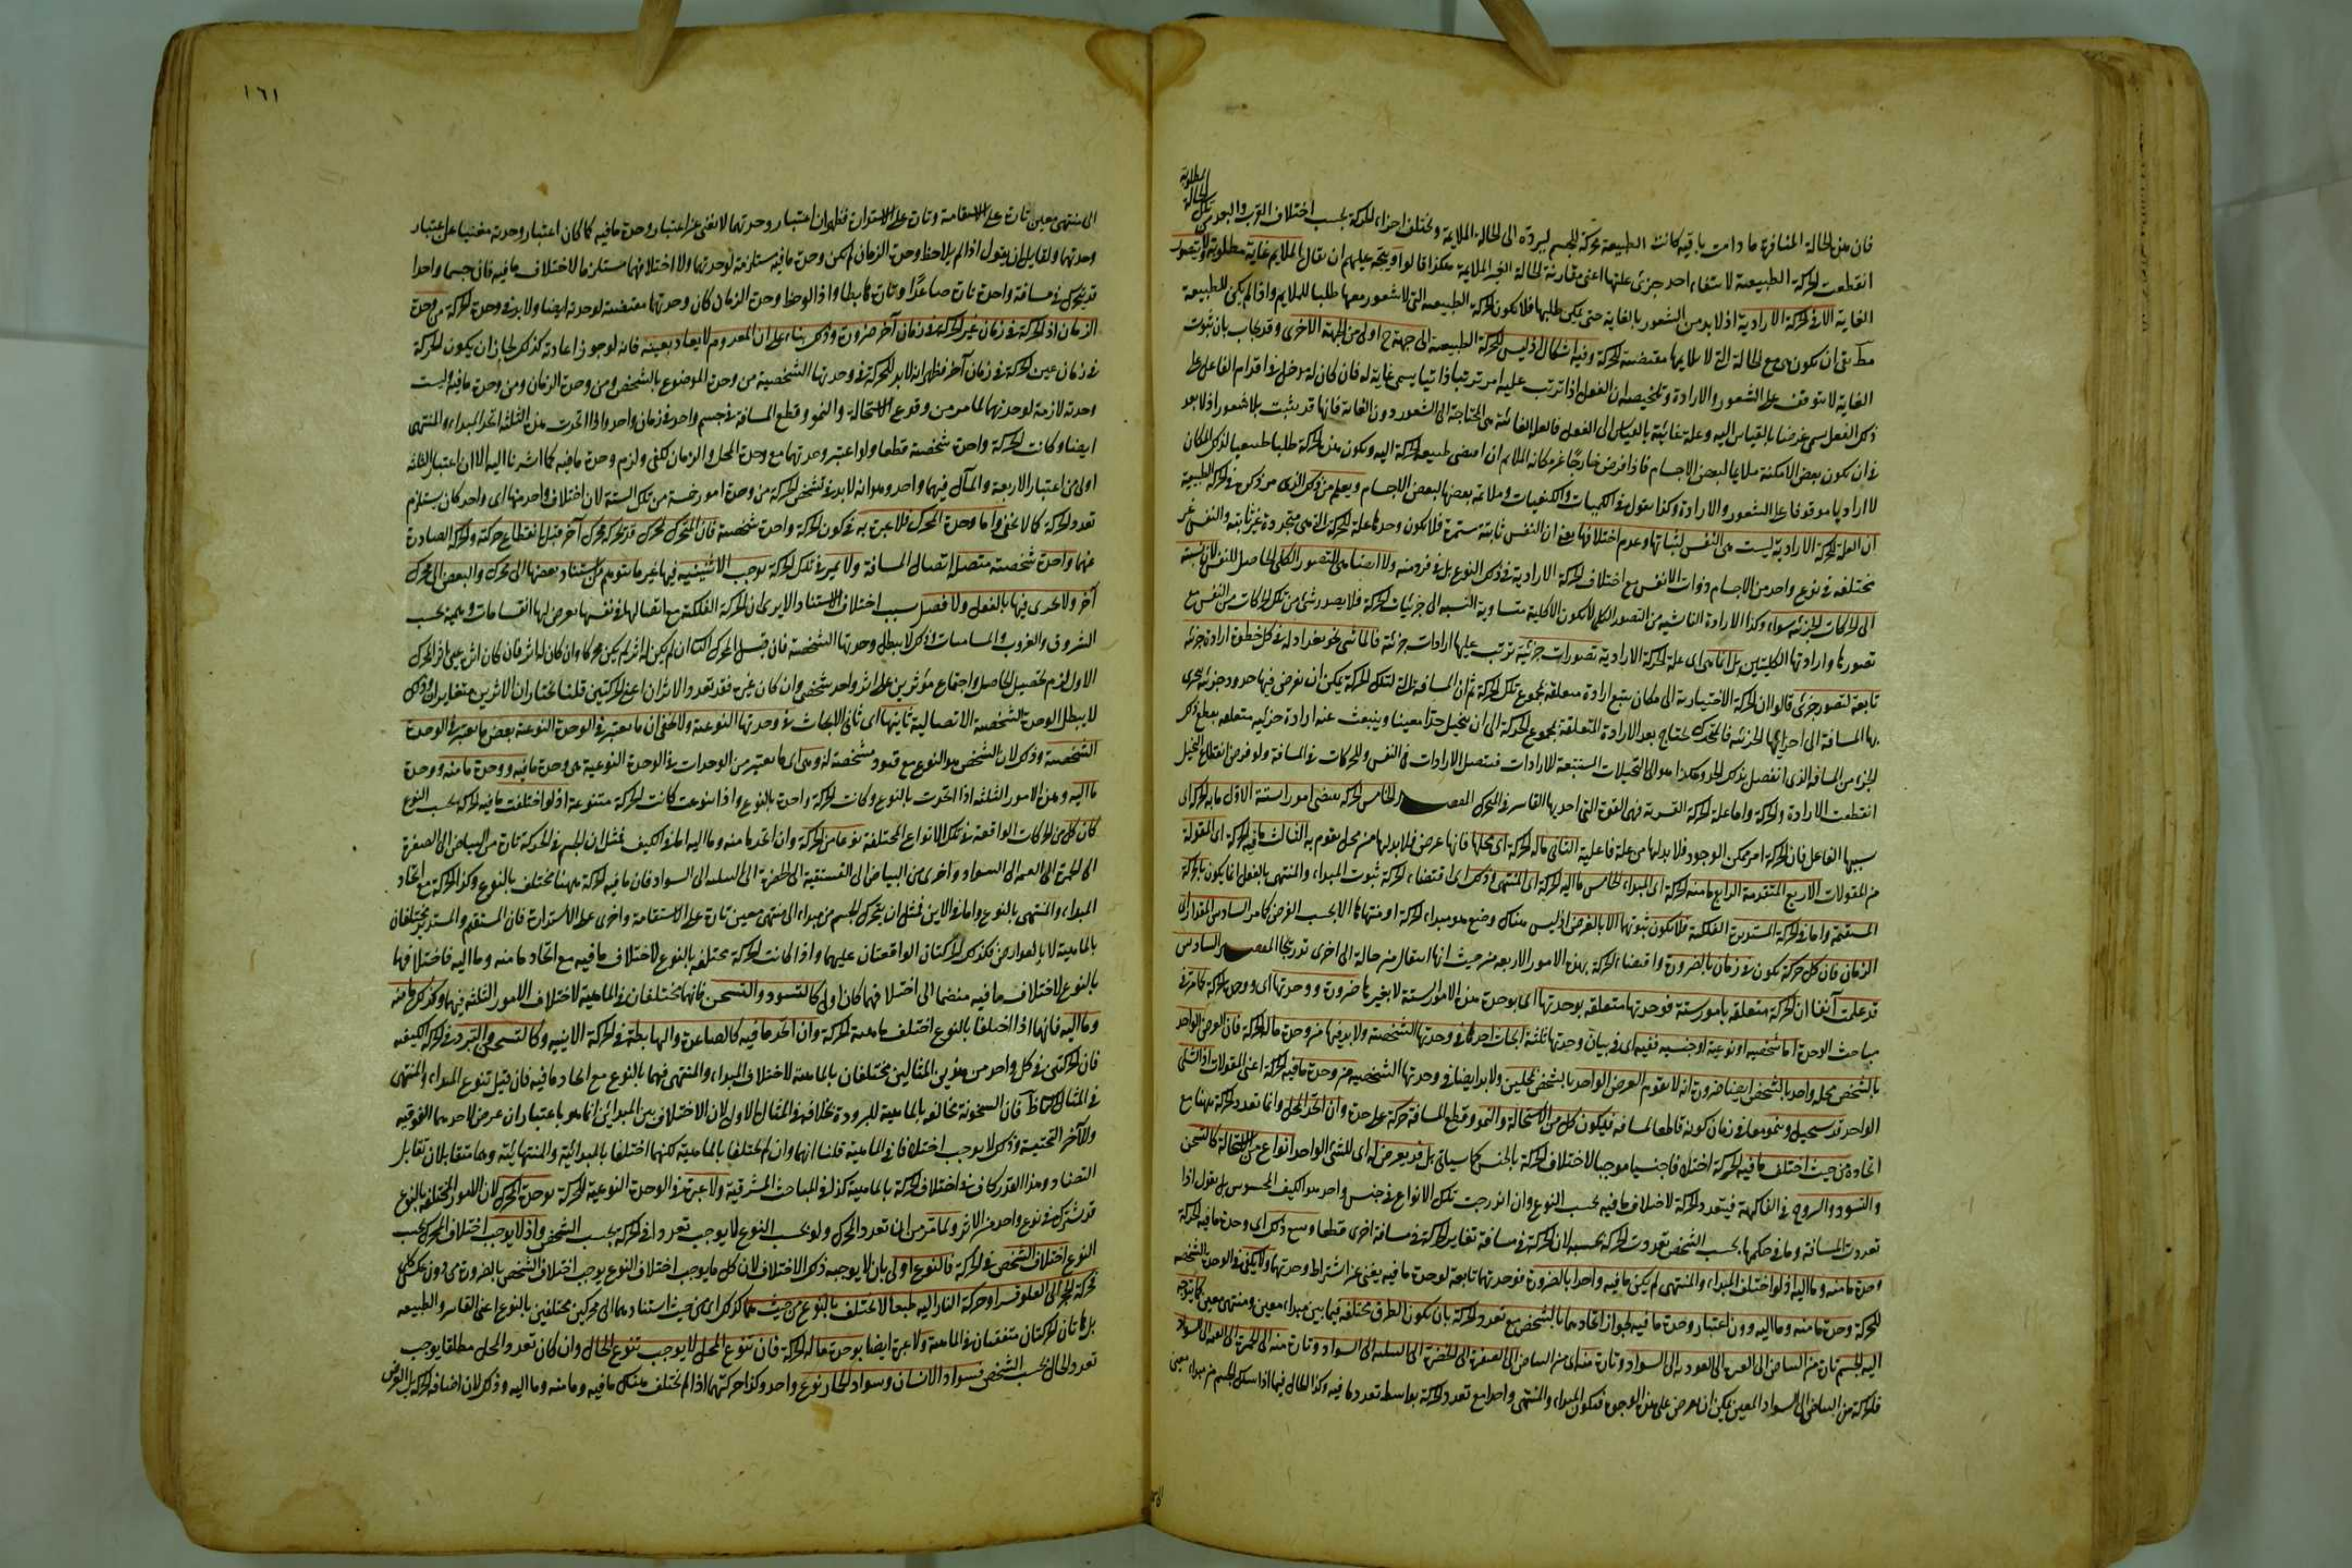 فان هذه الحالة المنافرة ما دامت باقية كانت الطبيعة محركة للجسم ليرده الى الحالة الملايمة وتختلف اجزاء الحركة بحسب اختلاف القرب والبعد من تلك الحالة المطلوبة
انقطعت الحركة الطبيعية لانتفاء احد جزئى علتها اعنى مقارنة الحالة الغير الملايمة هكذا قالوا ويتجه عليهم ان يقال الملايم غاية مطلوبة ولا يتصور
الغاية الا فى الحركة الارادية اذ لا بد من الشعور بالغاية حتى يمكن طلبها فلا تكون الحركة الطبيعية التى لا شعور معها طلبا للملايم واذا لم يكن للطبيعة
ان تكون هى مع الحالة التى لا يلايمها مقتضية للحركة وفيه اشكال اذ ليس الحركة الطبيعية الى جهة ح اولى من الجهة الاخرى وقد يجاب بان ثبوت
الغاية لا يتوقف على الشعور والارادة وتلخيصه ان الفعل اذا ترتب عليه امر ترتبا ذاتيا يسمى غاية له فان كان له مدخل فى اقدام الفاعل على
ذلك الفعل سمى غرضا بالقياس اليه وعلة غائية بالقياس الى الفعل فالعلة الغائية هى المحتاجة الى الشعور دون الغاية فانها قد يثبت بلا شعور اذ لا بعد
فى ان يكون بعض الامكنة ملايما لبعض الاجسام فاذا فرض خارجا عن مكانه الملايم ان اقتضى طبيعة الحركة اليه ويكون هذه الحركة طلبا طبيعيا لذلك المكان
لا اراديا موقوفا على الشعور والارادة وكذا نقول فى الكميات والكيفيات وملايمة بعضها لبعض الاجسام ويعلم من ذلك الذى مر ذكره فى الحركة الطبيعية
ان العلة للحركة الارادية ليست هى النفس لثباتها وعدم اختلافها يعنى ان النفس ثابتة مستمرة فلا يكون وحدها علة للحركة التى هى متجددة غير ثابتة والنفس غير
مختلفة فى نوع واحد من الاجسام ذوات الانفس مع اختلاف الحركة الارادية فى ذلك النوع بل فى فرد منه ولا ايضا هى التصور الكلى الحاصل للنفس لان نسبته
الى الحركات الجزئية سواء وكذا الارادة الناشية من التصور الكلى لا يكون الا كلية متساوية النسبة الى جزئيات الحركة فلا يصدر شئ من تلك الحركات من النفس مع
تصورها وارادتها الكليتين بل انما هى اى علة الحركة الارادية تصورات جزئية ترتب عليها ارادات جزئية فالماشى نحو بغداد له فى كل خطوة ارادة جزئية
تابعة لتصور جزئى قالوا ان الحركة الاختيارية الى مكان يتبع ارادة متعلقة بمجموع تلك الحركة ثم ان المسافة التى لتلك الحركة يمكن ان نفرض فيها حدود جزئية يتجزى
بها المسافة الى اجزائها الجزئية فالمتحرك يحتاج بعد الارادة المتعلقة بمجموع الحركة الى ان يتخيل حدا معينا وينبعث عنه ارادة جزئية متعلقة بقطع ذلك
الجزء من المسافة الذى انفصل بذلك الحد وهكذا التخيلات المستتبعة للارادات فتتصل الارادات فى النفس والحركات فى المسافة ولو فرض انقطاع التخيل
انقطعت الارادة والحركة واما علة الحركة القسرية فهى القوة التى احدثها القاسر فى المتحرك المقصد الخامس الحركة يقتضى امورا ستة الاول ما به الحركة اى
سببها الفاعل فان الحركة امر ممكن الوجود فلا بد لها من علة فاعلية الثانى ما له الحركة اى محلها فانها عرض فلا بد لها من محل يقوم به الثالث ما فيه الحركة اى المقولة
من المقولات الاربع المتقدمة الرابع ما منه الحركة اى المبداء الخامس ما اليه الحركة اى المنتهى وذلك اى اقتضاء الحركة ثبوت المبداء والمنتهى بالفعل انما يكون بالحركة
المستقيمة واما فى الحركة المستديرة الفلكية فلا يكون ثبوتهما الا بالفرض اذ ليس هناك وضع هو مبداء الحركة او منتهاها الا بحسب الفرض كما مر السادس المقدار اى
الزمان فان كل حركة يكون فى زمان بالضرورة واقتضاء الحركة بهذه الامور الاربعة من حيث انها انتقال من حالة الى اخرى تدريجا المقصد السادس
قد علمت آنفا ان الحركة متعلقة بامور ستة فوحدتها متعلقة بوحدتها اى بوحدة هذه الامور الستة لا بغيرها ضرورة ووحدتها اى وحدة الحركة كما مر فى
مباحث الوحدة اما شخصية او نوعية او جنسية ففيه اى فى بيان وحدتها ثلثة ابحاث احدها فى وحدتها الشخصية ولا بد فيها من وحدة ما له الحركة فان العرض الواحد
بالشخص محله واحد بالشخص ايضا ضرورة انه لا يقوم العرض الواحد بالشخص بمحلين ولا بد ايضا فى وحدتها الشخصية من وحدة ما فيه الحركة اعنى المقولات اذ الشئ
الواحد قد يستحيل وينمو معا فى زمان كونه قاطعا لمسافة فيكون كل من الاستحالة والنمو وقطع المسافة حركة على حدة وان اتحد المحل وانما تعدد الحركة ههنا مع
اتحاده من حيث اختلف ما فيه الحركة اختلافا جنسيا موجبا لاختلاف الحركة بالجنس كما سياتى بل قد يعرض له اى للشئ الواحد انواع من الاستحالة كالتسخن
والتسود والتروح فى الفاكهة فيتعدد الحركة لاختلاف ما فيه بحسب النوع وان اندرجت تلك الانواع فى جنس واحد هو الكيف المحسوس بل نقول اذا
تعددت المسافة وما فى حكمها بحسب الشخص تعددت الحركة بحسبه لان الحركة فى مسافة تغاير الحركة فى مسافة اخرى قطعا ويتبع ذلك اى وحدة ما فيه الحركة
وحدة ما منه وما اليه اذ لو اختلف المبداء والمنتهى لم يكن ما فيه واحدا بالضرورة فوحدتهما تابعة لوحدة ما فيه يغنى عن اشتراط وحدتهما ولا يكفى فى الوحدة الشخصية
للحركة وحدة ما منه وما اليه دون اعتبار وحدة ما فيه لجواز اتحادهما بالشخص مع تعدد الحركة بان يكون الطرق مختلفة فيما بين مبداء معين ومنتهى معين كما يتوجه
اليه الجسم تارة من البياض الى الغبرة الى العودية الى السواد وتارة منه اى من البياض الى الصفرة الى الخضرة الى النيلية الى السواد وتارة منه الى الحمرة الى القتمة الى السواد
فالحركة من البياض الى السواد المعين يمكن ان يعرض على هذه الوجوه فيكون المبداء والمنتهى واحدا مع تعدد الحركة بواسطة تعدد ما فيه وكذا الحال فيما اذا سلك الجسم من مبداء معين
١٦١
الى منتهى معين تارة على الاستقامة وتارة على الاستدارة فظهر ان اعتبار وحدتهما لا يغنى عن اعتبار وحدة ما فيه كما كان اعتبار وحدته مغنيا عن اعتبار
وحدتهما ولقايل ان يقول اذا لم يلاحظ وحدة الزمان لم يكن وحدة ما فيه مستلزمة لوحدتهما ولا اختلافهما مستلزما لاختلاف ما فيه فان جسما واحدا
قد يتحرك فى مسافة واحدة تارة صاعدا وتارة هابطا واذا لوحظ وحدة الزمان كان وحدتهما مقتضية لوحدته ايضا ولا بد فى وحدة الحركة من وحدة
الزمان اذ الحركة فى زمان غير الحركة فى زمان آخر ضرورة وذلك بناء على ان المعدوم لا يعاد بعينه فانه لو جوز اعادته كذلك لجاز ان يكون الحركة
فى زمان عين الحركة فى زمان آخر فظهر انه لا بد للحركة فى وحدتها الشخصية من وحدة الموضوع بالشخص ومن وحدة الزمان ومن وحدة ما فيه وليست
وحدته لازمة لوحدتهما لما مر من وقوع الاستحالة والنمو وقطع المسافة فى جسم واحد فى زمان واحد واذا اتحدت هذه الثلثة اتحد المبداء والمنتهى
ايضا وكانت الحركة واحدة شخصية قطعا ولو اعتبر وحدتهما مع وحدة المحل والزمان لكفى ولزم وحدة ما فيه كما اشرنا اليه الا ان اعتبار الثلثة
اولى من اعتبار الاربعة والمآل فيهما واحد وهو انه لا بد فى تشخص الحركة من وحدة امور خمسة من تلك الستة لان اختلاف واحد منها اى واحد كان يستلزم
تعدد الحركة كما لا يخفى واما وحدة المحرك فلا عبرة به فى كون الحركة واحدة شخصية فان المتحرك بمحرك قد يحركه محرك آخر قبل انقطاع حركته والحركة الصادرة
عنهما واحدة شخصية متصلة اتصال المسافة ولا تميز فى تلك الحركة يوجب الاثنينية فيها غير ما يتوهم من استناد بعضها الى محرك والبعض الى محرك
آخر ولا تجزى فيها بالفعل ولا فصل بسبب اختلاف الاستناد الا يرى ان الحركة الفلكية مع اتصالها فى نفسها يعرض لها انقسامات وهمية بحسب
الشروق والغروب والمسامتات وذلك لا يبطل وحدتها الشخصية فان قيل المحرك الثانى ان لم يكن له اثر لم يكن محركا وان كان له اثر فان كان اثره عين اثر المحرك
الاول لزم تحصيل الحاصل واجتماع مؤثرين على اثر واحد شخصى وان كان غيره فقد تعدد الاثران اعنى الحركتين قلنا نختار ان الاثرين متغايران وذلك
لا يبطل الوحدة الشخصية الاتصالية ثانيها اى ثانى الابحاث فى وحدتها النوعية ولا يخفى ان ما يعتبر فى الوحدة النوعية بعض ما يعتبر فى الوحدة
الشخصية وذلك لان الشخص هو النوع مع قيود مشخصة له وهى اى ما يعتبر من الوحدات فى الوحدة النوعية هى وحدة ما فيه ووحدة ما منه ووحدة
ما اليه وهذه الامور الثلثة اذا اتحدت بالنوع كانت الحركة واحدة بالنوع واذا تنوعت كانت الحركة متنوعة اذ لو اختلفت ما فيه الحركة بحسب النوع
كان كل من الحركات الواقعة فى تلك الانواع المختلفة نوعا من الحركة وان اتحد ما منه وما اليه اما فى الكيف فمثل ان الجسم فى الحركة تارة من البياض الى الصفرة
الى الحمرة الى القتمة الى السواد واخرى من البياض الى الفستقية الى الخضرة الى النيلية الى السواد فان ما فيه الحركة ههنا مختلف بالنوع وكذا الحركة مع اتحاد
المبداء والمنتهى بالنوع واما فى الاين فمثل ان يتحرك الجسم من مبداء الى منتهى معين تارة على الاستقامة واخرى على الاستدارة فان المستقيم والمستدير مختلفان
بالماهية لا بالعوارض فكذلك الحركتان الواقعتان عليهما واذا كانت الحركة مختلفة بالنوع لاختلاف ما فيه مع اتحاد ما منه وما اليه فاختلافها
بالنوع لاختلاف ما فيه منضما الى اختلافهما كان اولى كالتسود والتسخن فانهما يختلفان فى الماهية لاختلاف الامور الثلثة فيهما وكذلك ما منه
وما اليه فانهما اذا اختلفا بالنوع اختلف ماهية الحركة وان اتحد ما فيه كالصاعدة والهابطة فى الحركة الاينية وكالتسخن والتبرد فى الحركة الكيفية
فان الحركتين فى كل واحد من هذين المثالين مختلفتان بالماهية لاختلاف المبداء والمنتهى فيهما بالنوع مع اتحاد ما فيه فان قيل تنوع المبداء والمنتهى
فى المثال الثانى ظاهر فان السخونة مخالفة بالماهية للبرودة بخلافه فى المثال الاول لان الاختلاف بين المبدائين انما هو باعتبار ان عرض لاحدهما الفوقية
والآخر التحتية وذلك لا يوجب اختلافا فى الماهية قلنا انهما وان لم يختلفا بالماهية لكنهما اختلفا بالمبدائية والمنتهائية وهما متقابلان تقابل
التضاد وهذا القدر كاف فى اختلاف الحركة بالماهية كذا فى المباحث المشرقية ولا عبرة فى الوحدة النوعية للحركة بوحدة المحرك لان الامور المختلفة بالنوع
قد تشترك فى نوع واحد من الاثر ولما تقرر من ان تعدد المحرك ولو بحسب النوع لا يوجب تعددا فى الحركة بحسب الشخص واذ لا يوجب اختلاف المحرك بحسب
النوع اختلاف الشخص فى الحركة فالنوع اولى بان لا يوجبه ذلك الاختلاف لان كل ما يوجب اختلاف النوع يوجب اختلاف الشخص بالضرورة من دون عكس كلى
فحركة الحجر الى العلو قسرا وحركة النار اليه طبعا لا يختلف بالنوع من حيث هما كذلك اى من حيث استنادهما الى محركين مختلفين بالنوع اعنى القاسر والطبيعة
بل هاتان الحركتان متفقتان فى الماهية ولا عبرة ايضا بوحدة ما له الحركة فان تنوع المحل لا يوجب تنوع الحال وان كان تعدد المحل مطلقا يوجب
تعدد الحال بحسب الشخص فسواد الانسان وسواد الحمار نوع واحد وكذا حركتهما اذا لم يختلف هناك ما فيه وما منه وما اليه وذلك لان اضافة الحركة بل العرض